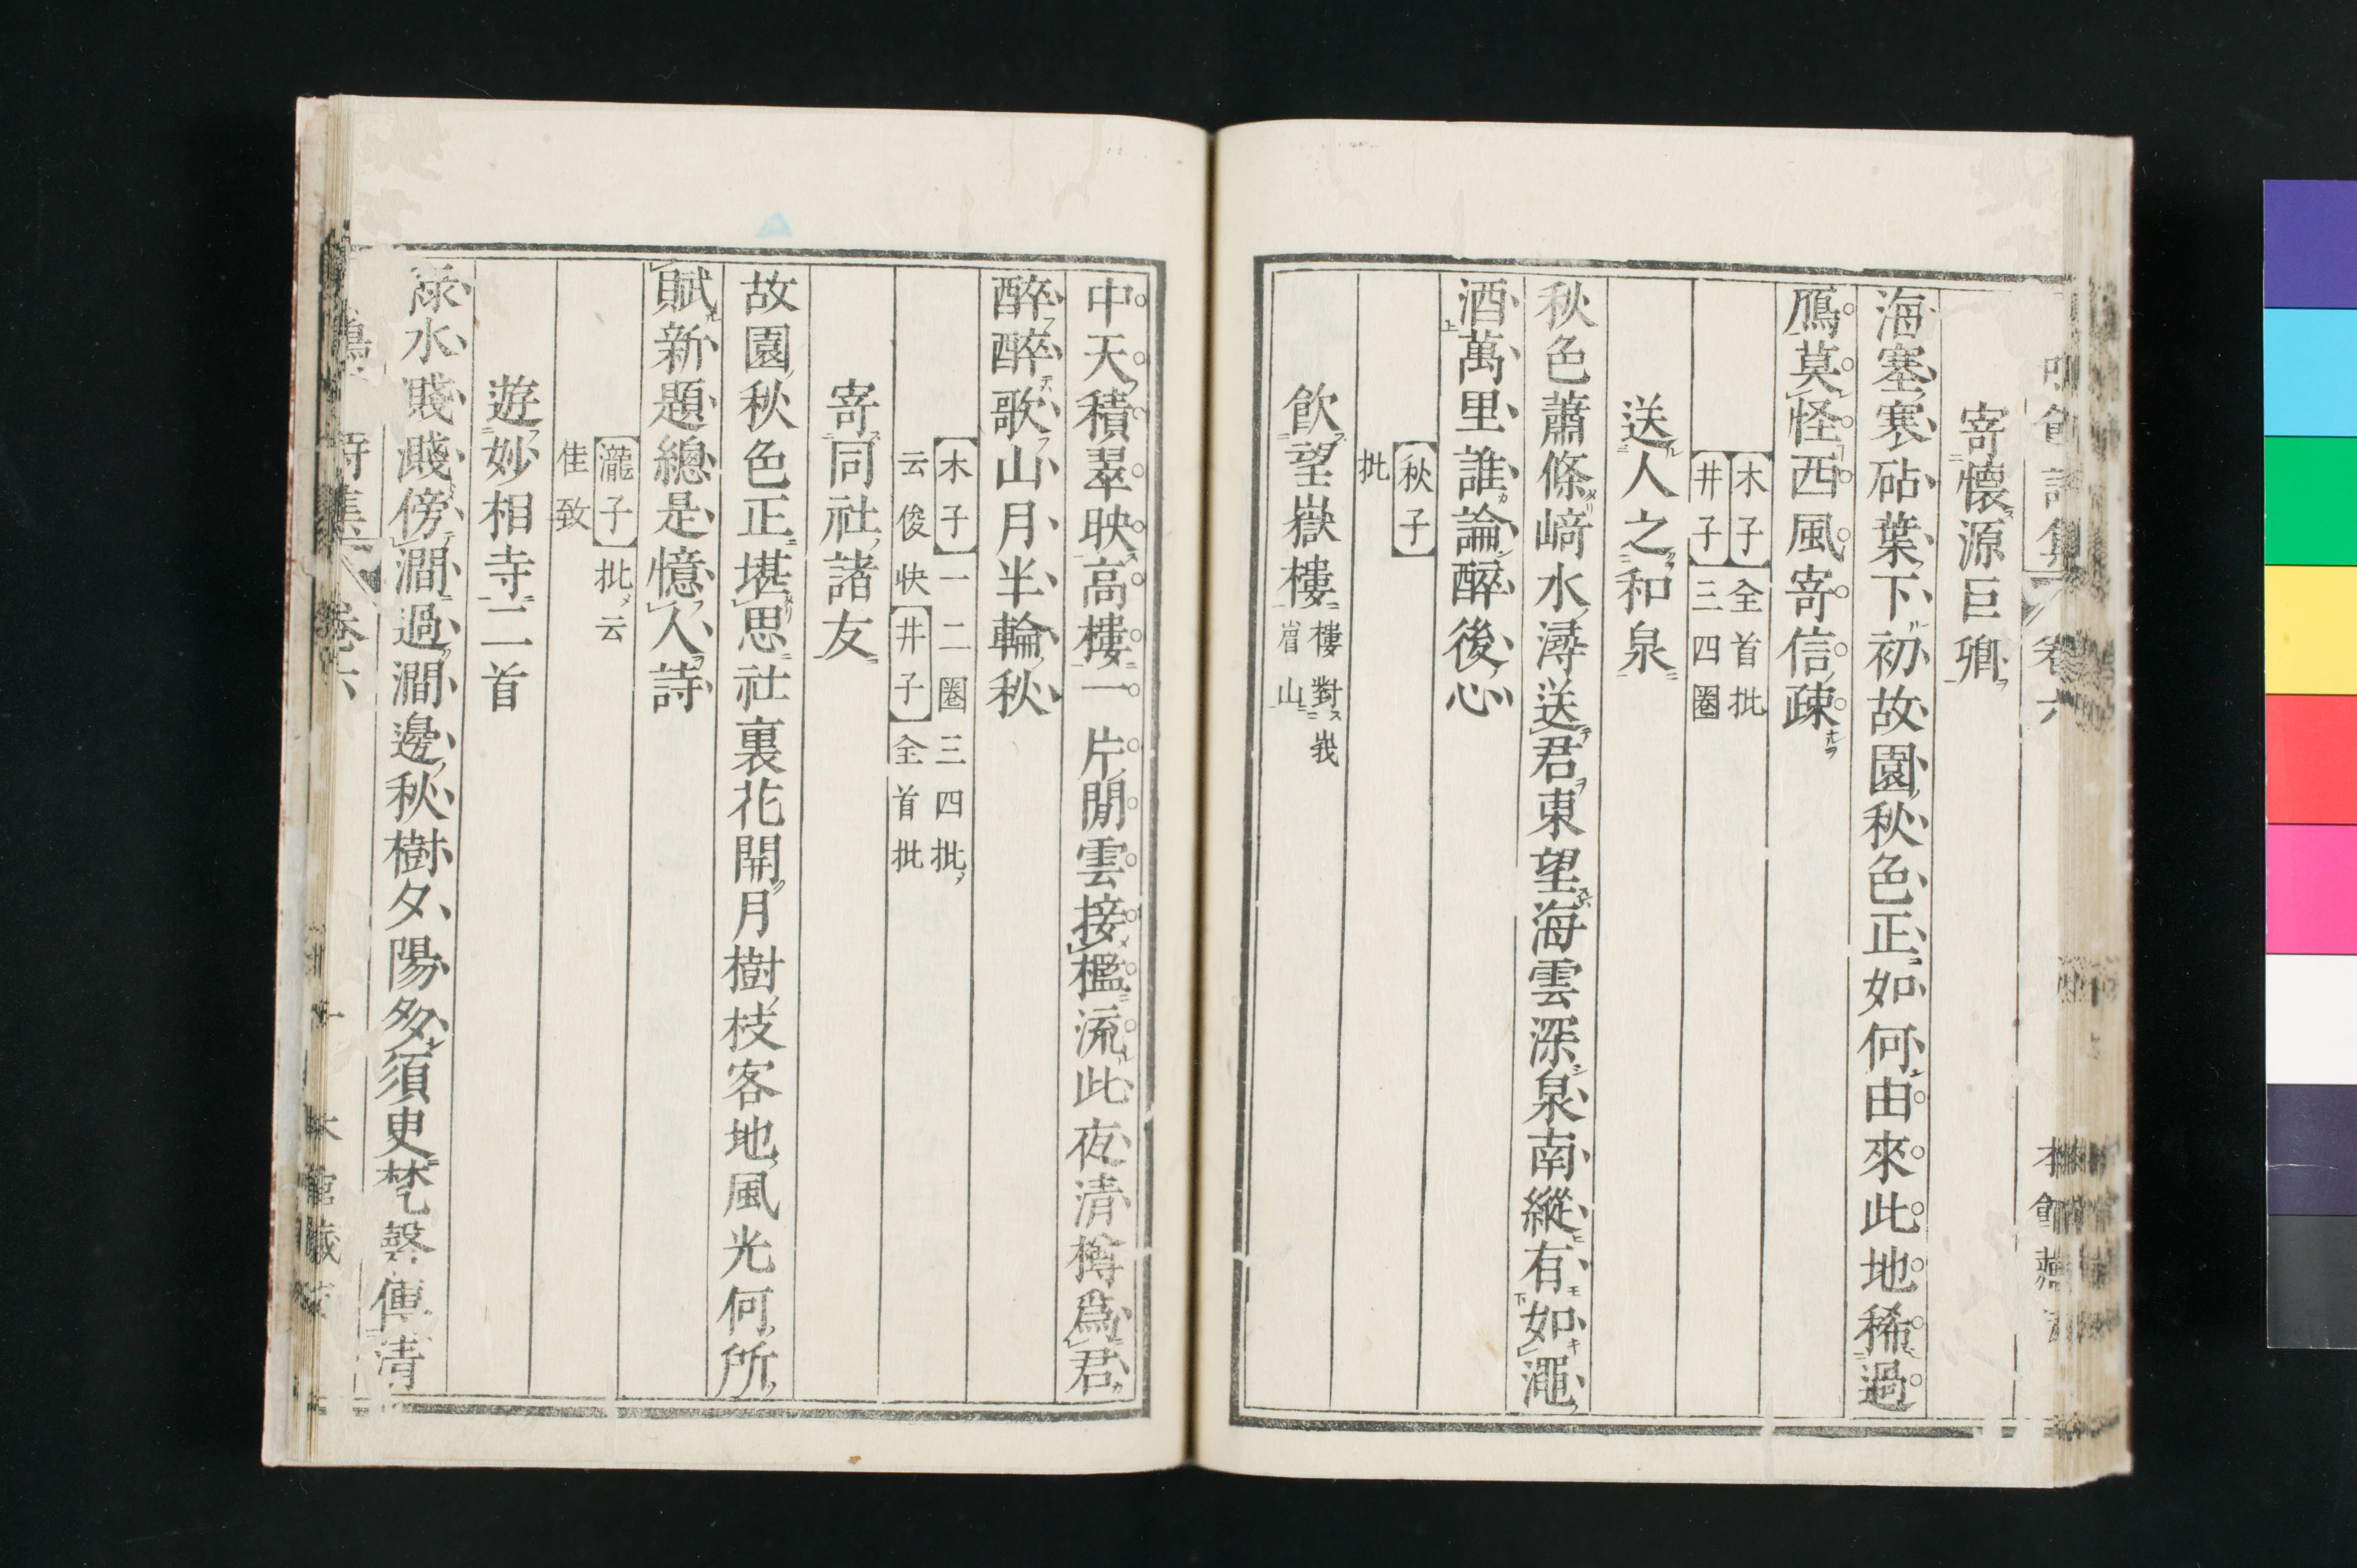 寄懷源巨卿
海塞寒砧葉下初故園秋色正如何由來此地稀過
鴈莫怪西風寄信疎
木子全首批
井子三四圈
送人之和泉
秋色蕭條﨑水潯送君東望海雲深泉南縱有如澠
酒萬里誰論醉後心
秋子
批
飲望嶽樓
樓對峩
眉山
中天積翠映高樓一片閒雲接檻流此夜清樽爲君
醉醉歌山月半輪秋
木子一二圈三四批
云俊快井子全首批
寄同社諸友
故園秋色正堪思社裏花開月樹枝客地風光何所
賦新題總是憶人詩
瀧子批云
佳致
遊妙相寺二首
渌水濺濺傍澗過澗邊秋樹夕陽多須臾梵磬傳清
卷六